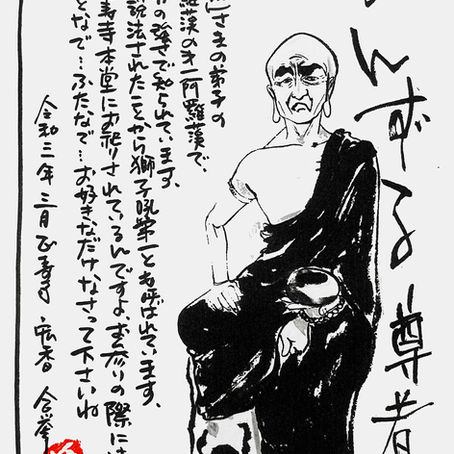 んずる尊者
さまの弟子の
羅漢の才一阿羅漢で、
の強さで知られています。
説法されたことから獅子吼第一とも呼ばれています。
寿寺本堂にお祀りされているんですよ、お参りの際には
となで…ふたなで…お好きなだけなさって下さいね
令和三年三月 正寿寺 宏香 合掌